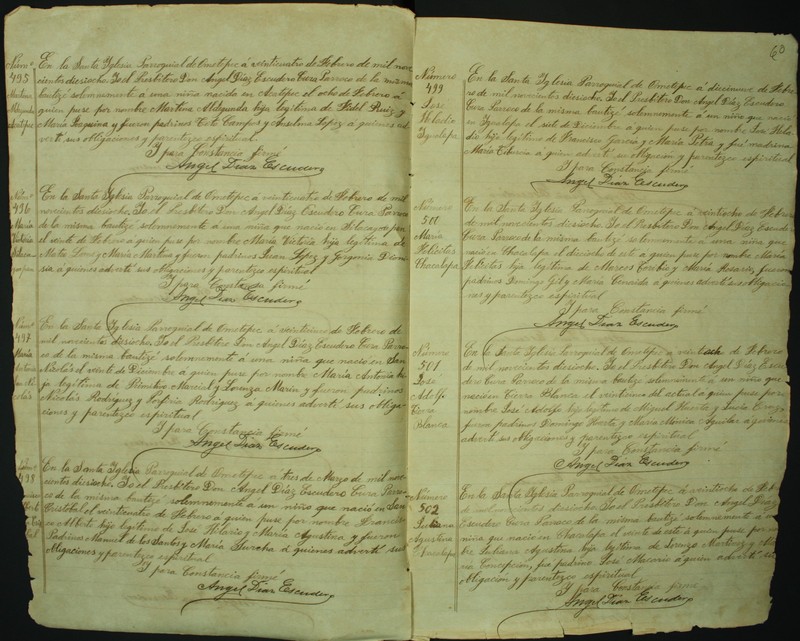 Núm°
495
Martina
Milgunda
En la Santa Iglesia Parroquial de Ometepec á veinticuatro de Febrero de mil nove
cientos dieciocho. Yo el Presbitero Don Angel Díaz Escudero Cura Parroco de la misma
bauticé solemnemente a una niña nacida en el ocho de Febrero á
quien puse por nombre Martina Milgunda hija legítima de Fidel Ruiz y
María y fueron padrinos Campos y Anselma López á quienes ad
vertí sus obligaciones y parentezco espiritual
Y para Constancia firmé
Angel Díaz Escudero
Núm°
496
María
Victoria
En la Santa Iglesia Parroquial de Ometepec á veinticuatro de Febrero de mil
novecientos dieciocho, Yo el Presbitero Don Angel Díaz Escudero Cura Parroco
de la misma bauticé solemnemente á una niña que nació en
el veinte de Febrero a quien puse por nombre María Victoria hija legítima de
y María Martina y fueron padrinos Juan López y Gorgonia
á quienes advertí sus obligaciones y parentezco espiritual
Y para Constancia firmé
Angel Díaz Escudero
Núm°
497
María
Antonia
San Ni
colás
En la Santa Iglesia Parroquial de Ometepec á de Febrero de
mil novecientos dieciocho, Yo el Presbitero Don Angel Díaz Escudero Cura Parro
co de la misma bauticé solemnemente á una niña que nació en San
Nicolás el veinte de Diciembre a quien puse por nombre María Antonia hi
ja legítima de Marcial y Lorenza Marin y fueron padrinos
Nicolás Rodriguez y Porfiria Rodriguez á quienes advertí sus obliga
ciones y parentezco espiritual
Y para Constancia firmé
Angel Díaz Escudero
498
En la Santa Iglesia Parroquial de Ometepec a tres de Marzo de mil nove
cientos dieciocho. Yo el Presbitero Don Angel Díaz Escudero Cura Parro
co de la misma bauticé solemnemente a un niño que nació en San
Cristobal el veinticuatro de Febrero á quien puse por nombre Francis
co Alberto hijo legítimo de José Hilario y María Agustina y fueron
Padrinos Manuel de los Santos y María á quienes advertí sus
Obligaciones y parentezco espiritual
Y para Constancia firmé
Angel Díaz Escudero
60
Número
499
José
Igualapa
En la Santa Iglesia Parroquial de Ometepec á diecinueve de Febre
ro de mil novecientos dieciocho, Yo el Presbitero Don Angel Díaz Escudero
Cura Parroco de la misma bauticé solemnemente á un niño que nació
en Igualapa el siete de Diciembre a quien puse por nombre José
hijo legítimo de Francisco García y María Petra y fué madrina
María Tiburcia á quien advertí su obligacion y parentezco espiritual
Y para Constancia firmé
Angel Díaz Escudero
Número
500
María
Felicitas
Chacalapa
En la Santa Iglesia Parroquial de Ometepec á veintiocho de Febrero
de mil novecientos dieciocho, Yo el Presbitero Don Angel Díaz Escudero
Cura Parroco de la misma bauticé solemnemente á una niña que
nació en Chacalapa el dieciocho de este a quien puse por nombre María
Felicitas hija legítima de Marcos y María Rosario, fueron
padrinos Domingo Gil y María á quienes advertí sus obligacio
nes y parentezco espiritual
Y para Constancia firmé
Angel Díaz Escudero
Número
501
José
Adolfo
Tierra
Blanca
En la Santa Iglesia Parroquial de Ometepec a veintiocho de Febrero
de mil novecientos dieciocho. Yo el Presbitero Don Angel Díaz Escu
dero Cura Parroco de la misma bauticé solemnemente á un niño que
nació en Tierra Blanca el veintiuno del actual á quien puse por
nombre José Adolfo hijo legítimo de Miguel Huerta y Lucía
fueron padrinos Domingo Huerta y María Mónica Aguilar á quienes
advertí sus obligaciones y parentezco espiritual
Y para Constancia firmé
Angel Díaz Escudero
Número
502
Agustina
Chacalapa
En la Santa Iglesia Parroquial de Ometepec á veintiocho de Febre
ro de mil novecientos dieciocho, Yo el Presbitero Don Angel Díaz
Escudero Cura Parroco de la misma bauticé solemnemente á una
niña que nació en Chacalapa el veinte de este á quien puse por nom
bre Agustina hija legítima de Lorenzo Martinez y Ma
ría Concepción, fué padrino José Macario á quien advertí su
Obligación y parentezco espiritual
Y para Constancia firmé
Angel Díaz Escudero